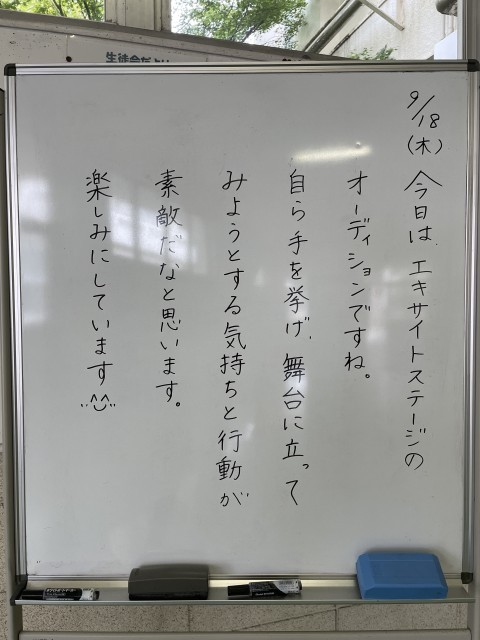 生徒会だより
9/18(木) 今日は、エキサイトステージの
オーディションですね。
自ら手を挙げ、舞台に立って
みようとする気持ちと行動が
素敵だなと思います。
楽しみにしています^^